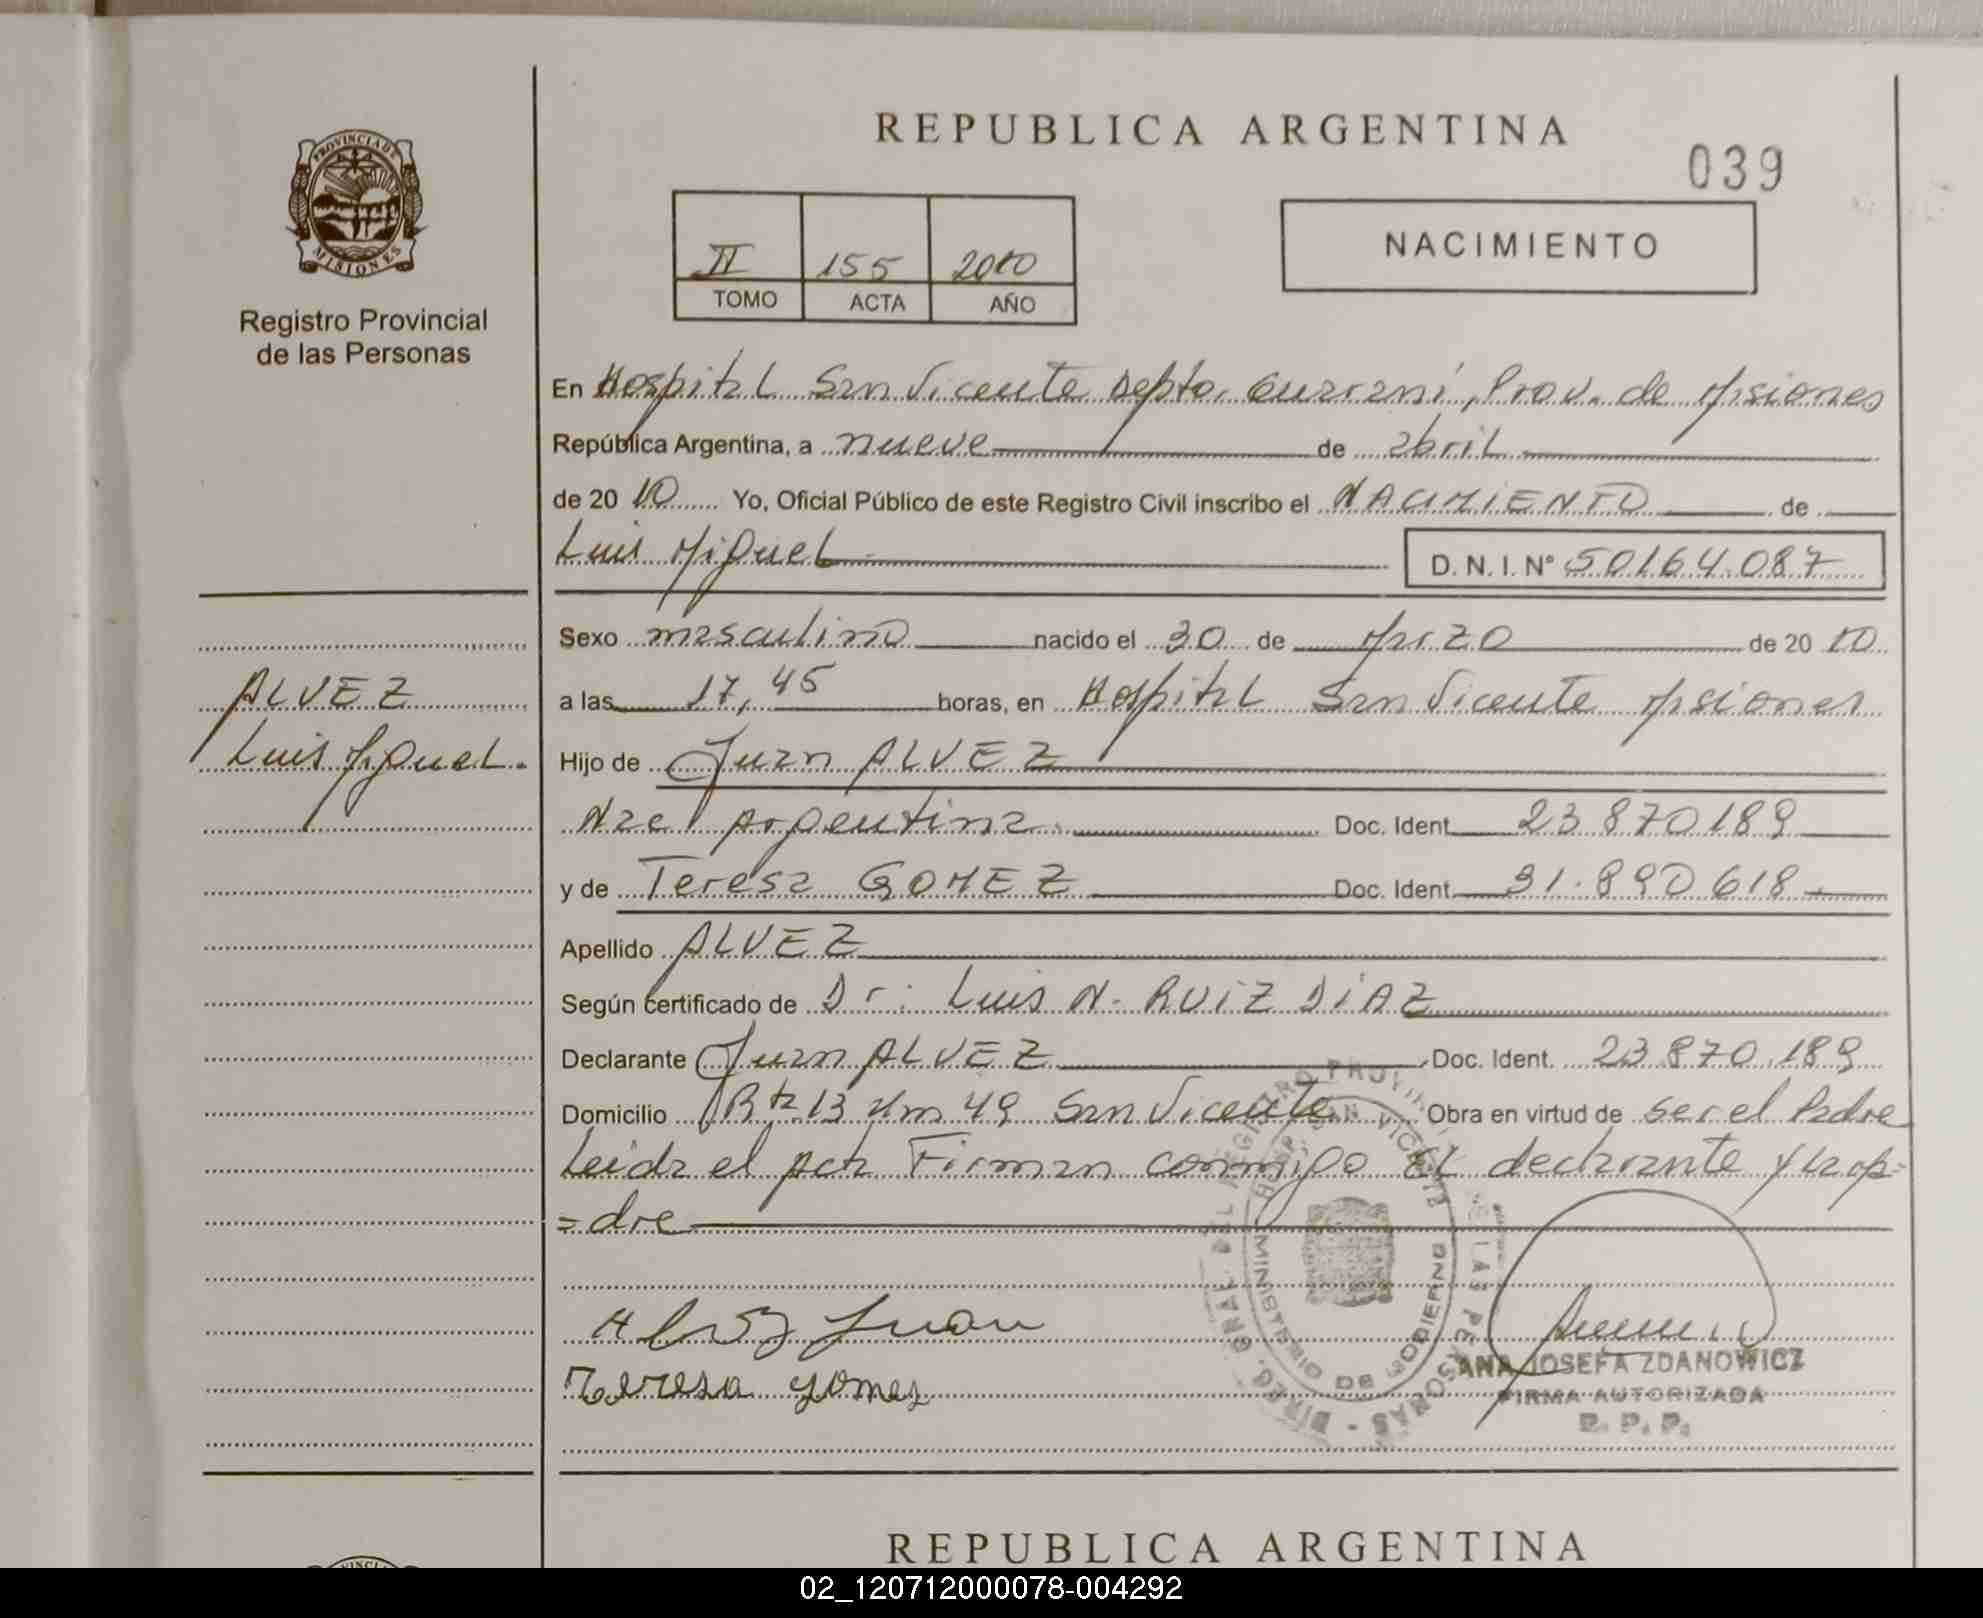 REPUBLICA ARGENTINA
039
PROVINCIA DE
MISIONES
Registro Provincial
de las Personas
II 155 2010
TOMO ACTA AÑO
NACIMIENTO
En Hospital San Vicente Depto. Guaraní, Prov. de Misiones
República Argentina, a nueve de abril
de 20 10 Yo, Oficial Público de este Registro Civil inscribo el NACIMIENTO de
Luis Miguel D. N. I. N° 50164.087
Sexo masculino nacido el 30 de Marzo de 20 10
a las 17,45 horas, en Hospital San Vicente Misiones
ALVEZ
Luis Miguel.
Hijo de Juan ALVEZ
Nac Argentina. Doc. Ident. 23 870 189
y de Teresa GOMEZ Doc. Ident. 31.890 618
Apellido ALVEZ
Según certificado de Dr: Luis N. RUIZ DIAZ
Declarante Juan ALVEZ Doc. Ident. 23 870.189
Domicilio Rta 13 Km 49 San Vicente Obra en virtud de ser el Padre
Leida el Acta Firman conmigo El declarante y la Ma=
=dre
Alvez Juan
Teresa gomez
DIREC. GRAL. DEL REGISTRO PROVINCIAL DE LAS PERSONAS
HOSP. SAN VICENTE
MINISTERIO DE GOBIERNO
ANA JOSEFA ZDANOWICZ
FIRMA AUTORIZADA
R. P. P.
REPUBLICA ARGENTINA
02_120712000078-004292